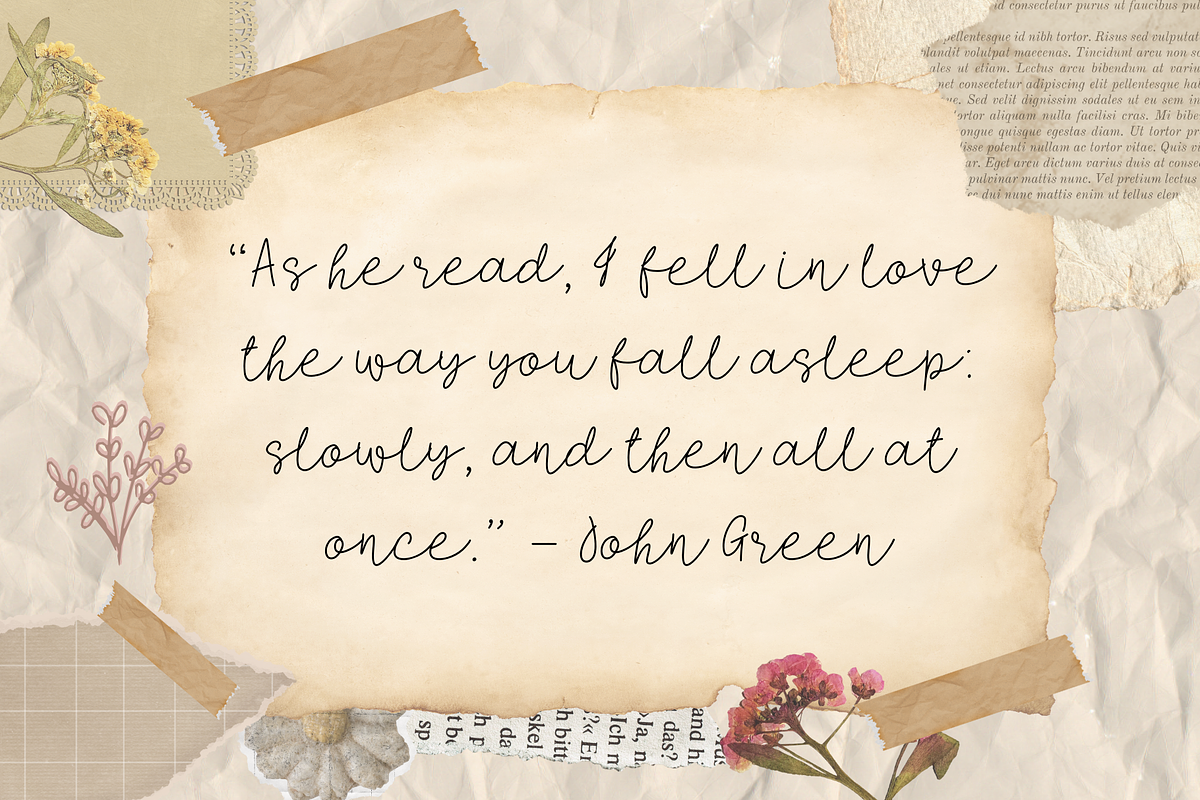 id consectetur purus ut faucibus pul
pellentesque id nibh tortor. Risus sed vulputat
blandit volutpat maecenas. Tincidunt arcu non so
ales ut etiam. Lectus arcu bibendum at variu
met consectetur adipiscing elit pellentesque ha
ue. Sed velit dignissim sodales ut eu sem in
tortor aliquam nulla facilisi cras. Mi bibe
ongue quisque egestas diam. Ut tortor pr
isse potenti nullam ac tortor vitae. Quis vi
ar. Eget arcu dictum varius duis at conse
pulvinar mattis nunc. Vel pretium lectus
ec dui nunc mattis enim ut tellus elem
“As he read, I fell in love
the way you fall asleep:
slowly, and then all at
once.” – John Green
and hi
das?
Ja, n
Ich m
?« Er
h bitt
skel
da
h p
t bu
sp